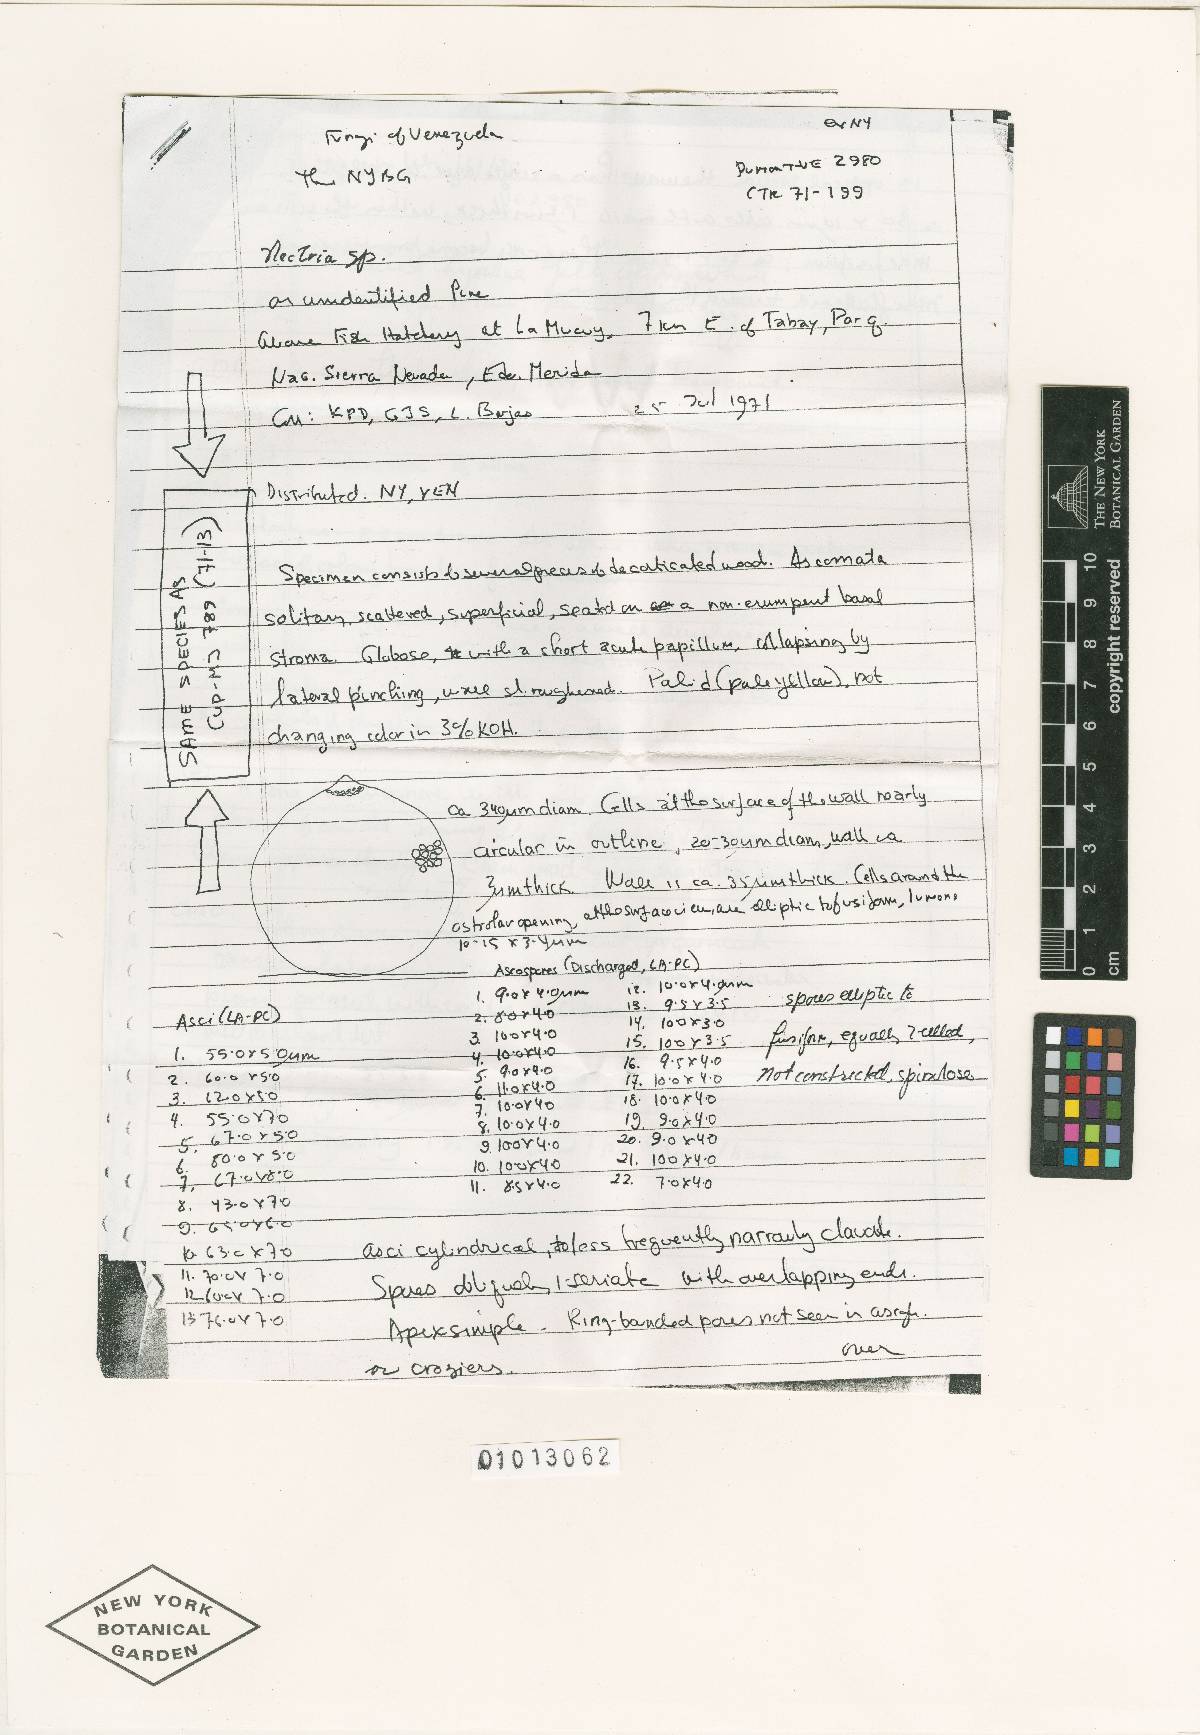 Fungi of Venezuela
ex NY
The NYBG
Dumont-VE 2980
CTR 71-199
Nectria sp.
on unidentified Pine
above Fish Hatchery at La Mucuy, 7 km E. of Tabay, Parq.
Nac. Sierra Nevada, Edo. Merida
Coll: KPD, GJS, L. Borjas 25 Jul 1971
Distributed. NY, VEN
SAME SPECIES AS
CUP-MJ 789 (71-13)
Specimen consists of several pieces of decorticated wood. Ascomata
solitary, scattered, superficial, seated on a non-erumpent basal
stroma. Globose, with a short acute papillum, collapsing by
lateral pinching, wall sl. roughened. Pallid (pale yellow), not
changing color in 3% KOH.
ca 340µm diam. Cells at the surface of the wall nearly
circular in outline, 20-30µm diam, wall ca
3µm thick. Wall is ca. 35µm thick. Cells around the
ostiolar opening, at the surface view, are elliptic to fusiform, lumens
10-15 x 3-4µm
Ascospores (Discharged, LA-PC)
1. 9.0 x 4.0µm
2. 8.0 x 4.0
3. 10.0 x 4.0
4. 10.0 x 4.0
5. 9.0 x 4.0
6. 11.0 x 4.0
7. 10.0 x 4.0
8. 10.0 x 4.0
9. 10.0 x 4.0
10. 10.0 x 4.0
11. 8.5 x 4.0
12. 10.0 x 4.0µm
13. 9.5 x 3.5
14. 10.0 x 3.0
15. 10.0 x 3.5
16. 9.5 x 4.0
17. 10.0 x 4.0
18. 10.0 x 4.0
19. 9.0 x 4.0
20. 9.0 x 4.0
21. 10.0 x 4.0
22. 7.0 x 4.0
spores elliptic to
fusiform, equally 2-celled,
not constricted, spinulose
Asci (LA-PC)
1. 55.0 x 5.0µm
2. 60.0 x 5.0
3. 62.0 x 5.0
4. 55.0 x 7.0
5. 67.0 x 5.0
6. 80.0 x 5.0
7. 67.0 x 8.0
8. 43.0 x 7.0
9. 65.0 x 6.0
10. 63.0 x 7.0
11. 70.0 x 7.0
12. 60.0 x 7.0
13. 76.0 x 7.0
asci cylindrical, to less frequently narrowly clavate.
Spores obliquely 1-seriate with overlapping ends.
Apex simple. Ring-banded pores not seen in ascog.
or croziers.
over
01013062
NEW YORK
BOTANICAL
GARDEN
THE NEW YORK
BOTANICAL GARDEN
copyright reserved
0 1 2 3 4 5 6 7 8 9 10
cm